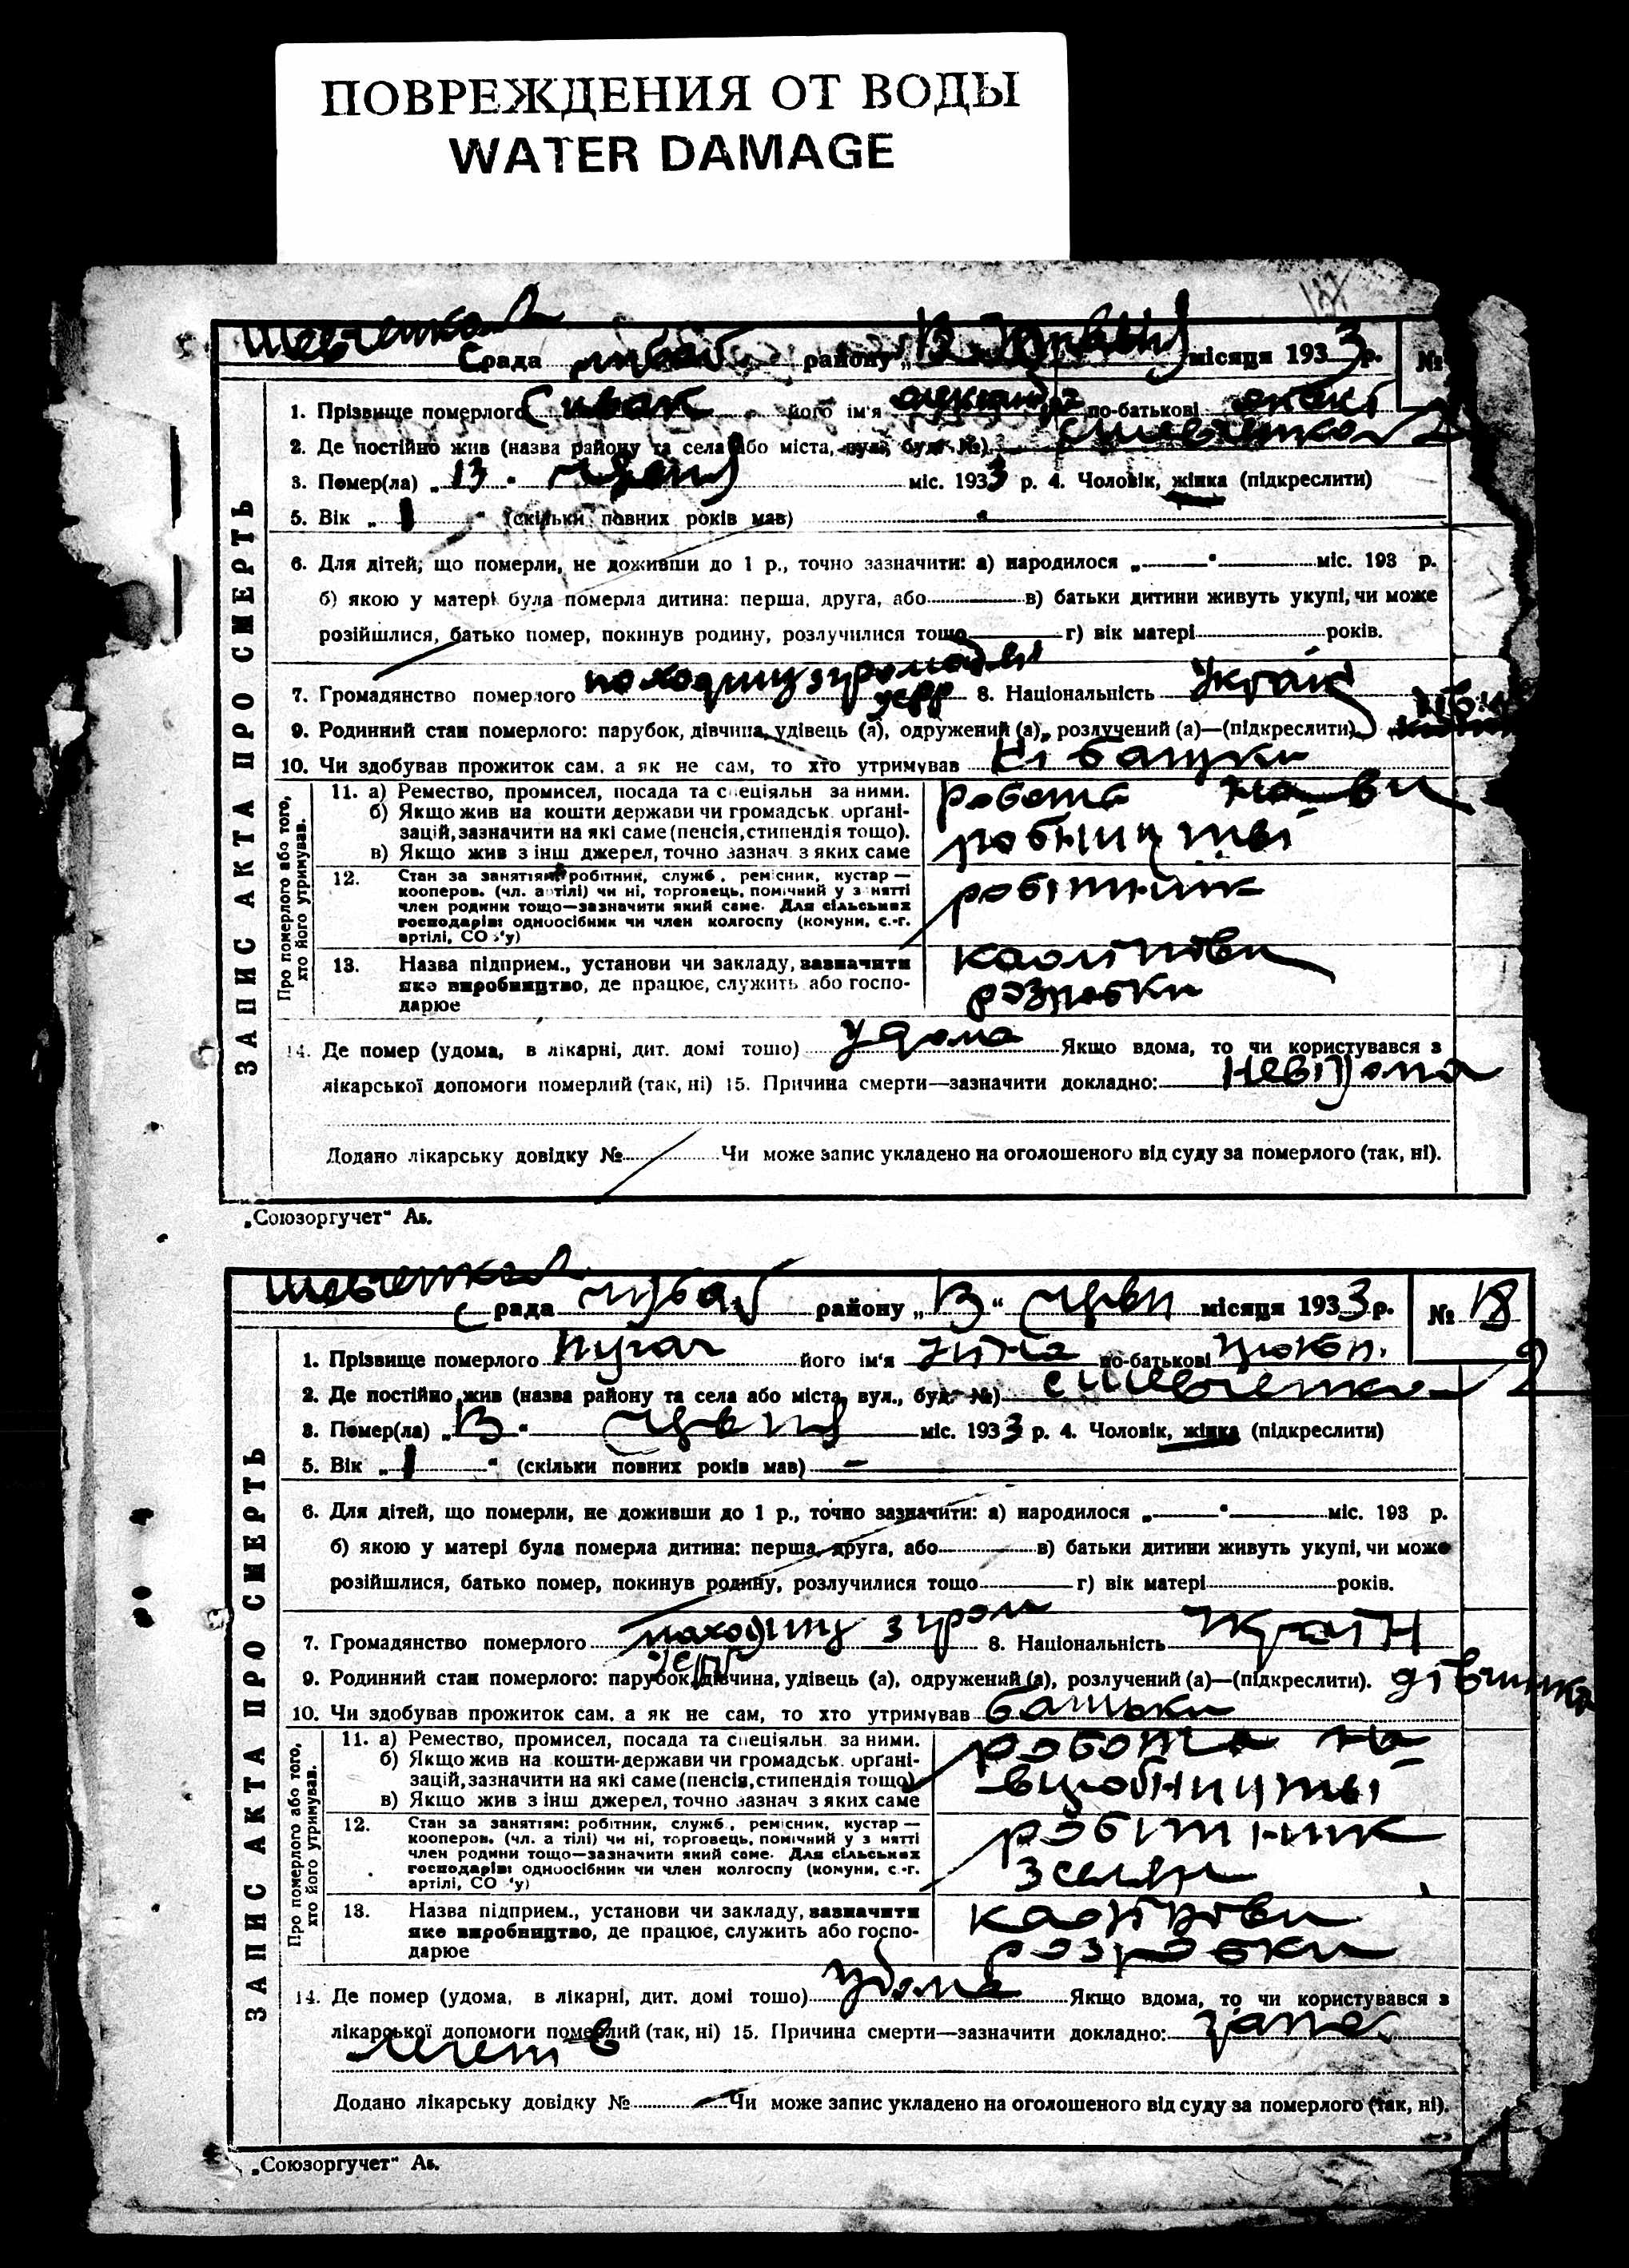 ПОВРЕЖДЕНИЯ ОТ ВОДЫ
WATER DAMAGE
137
рада району „13 місяця 1933 р. №
ЗАПИС АКТА ПРО СМЕРТЬ
1. Прізвище померлого Сивак його ім'я Олександра по-батькові
2. Де постійно жив (назва району та села або міста, вул., буд. №) с Шевченково
3. Помер(ла) „13" червня міс. 1933 р. 4. Чоловік, жінка (підкреслити)
5. Вік „1" (скільки повних років мав) -
6. Для дітей, що померли, не доживши до 1 р., точно зазначити: а) народилося „ " міс. 193 р.
б) якою у матері була померла дитина: перша, друга, або в) батьки дитини живуть укупі, чи може
розійшлися, батько помер, покинув родину, розлучилися тощо г) вік матері років.
7. Громадянство померлого походить з громадян усрр 8. Національність Украін
9. Родинний стан померлого: парубок, дівчина, удівець (а), одружений (а), розлучений (а)—(підкреслити).
10. Чи здобував прожиток сам, а як не сам, то хто утримував Ні батьки
Про померлого або того, хто його утримував.
11. а) Ремество, промисел, посада та спеціяльн за ними.
б) Якщо жив на кошти держави чи громадськ. органі-
зацій, зазначити на які саме (пенсія, стипендія тощо).
в) Якщо жив з інш джерел, точно зазнач. з яких саме
робота на ви
робництві
12. Стан за заняттям: робітник, служб., ремісник, кустар—
кооперов. (чл. артілі) чи ні, торговець, помічний у занятті
член родини тощо—зазначити який саме. Для сільських
господарів: одноосібник чи член колгоспу (комуни, с.-г.
артілі, СОЗ'у)
робітник
13. Назва підприєм., установи чи закладу, зазначити
яке виробництво, де працює, служить або госпо-
дарює
каолінові
розробки
14. Де помер (удома, в лікарні, дит. домі тощо) удома Якщо вдома, то чи користувався з
лікарської допомоги померлий (так, ні) 15. Причина смерти—зазначити докладно: Невідома
Додано лікарську довідку № Чи може запис укладено на оголошеного від суду за померлого (так, ні).
„Союзоргучет" Ав.
рада району „13" червн місяця 1933 р. № 18
ЗАПИС АКТА ПРО СМЕРТЬ
1. Прізвище померлого Пугач його ім'я по-батькові
2. Де постійно жив (назва району та села або міста, вул., буд. №) с Шевченково
3. Помер(ла) „13" червня міс. 1933 р. 4. Чоловік, жінка (підкреслити)
5. Вік „1" (скільки повних років мав) —
6. Для дітей, що померли, не доживши до 1 р., точно зазначити: а) народилося „ " міс. 193 р.
б) якою у матері була померла дитина: перша, друга, або в) батьки дитини живуть укупі, чи може
розійшлися, батько помер, покинув родину, розлучилися тощо г) вік матері років.
7. Громадянство померлого походить з гром усрр 8. Національність Украін
9. Родинний стан померлого: парубок, дівчина, удівець (а), одружений (а), розлучений (а)—(підкреслити). дівчинка
10. Чи здобував прожиток сам, а як не сам, то хто утримував батьки
Про померлого або того, хто його утримував.
11. а) Ремество, промисел, посада та спеціяльн. за ними.
б) Якщо жив на кошти держави чи громадськ. органі-
зацій, зазначити на які саме (пенсія, стипендія тощо).
в) Якщо жив з інш джерел, точно зазнач з яких саме
робота на
виробництві
12. Стан за заняттям: робітник, служб., ремісник, кустар—
кооперов. (чл. артілі) чи ні, торговець, помічний у занятті
член родини тощо—зазначити який саме. Для сільських
господарів: одноосібник чи член колгоспу (комуни, с.-г.
артілі, СОЗ'у)
робітник
13. Назва підприєм., установи чи закладу, зазначити
яке виробництво, де працює, служить або госпо-
дарює
каолінови
розробки
14. Де помер (удома, в лікарні, дит. домі тощо) удома Якщо вдома, то чи користувався з
лікарської допомоги померлий (так, ні) 15. Причина смерти—зазначити докладно:
Додано лікарську довідку № Чи може запис укладено на оголошеного від суду за померлого (так, ні).
„Союзоргучет" Ав.